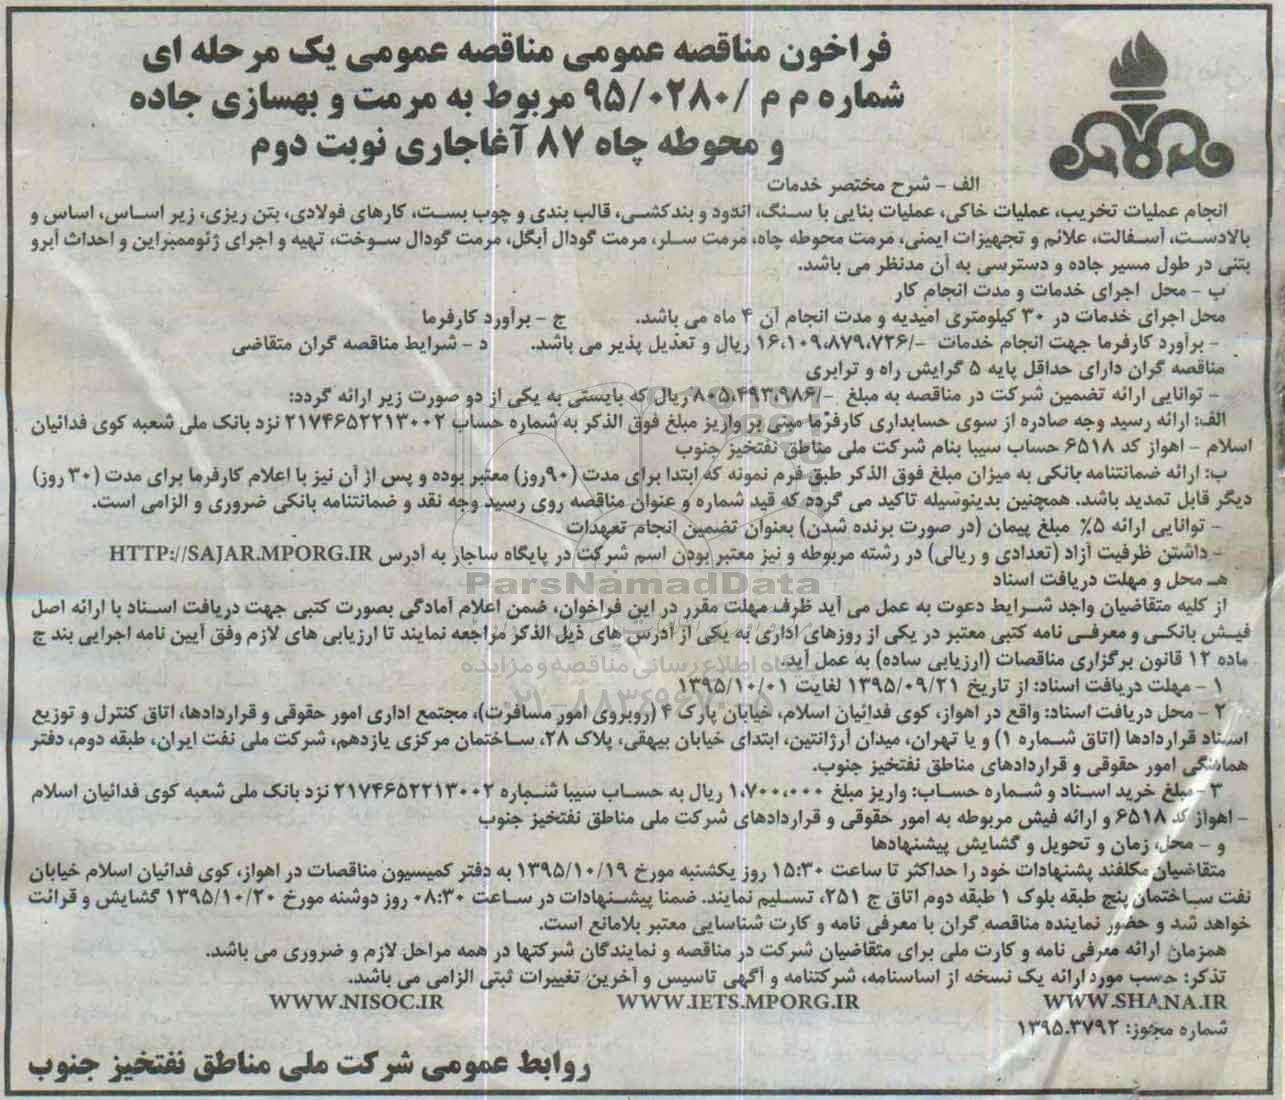 فراخون مناقصه عمومی مناقصه عمومی یک مرحله ای
شماره م م /۹۵/۰۲۸۰ مربوط به مرمت و بهسازی جاده
و محوطه چاه ۸۷ آغاجاری نوبت دوم
الف - شرح مختصر خدمات
انجام عملیات تخریب، عملیات خاکی، عملیات بنایی با سنگ، اندود و بندکشی، قالب بندی و چوب بست، کارهای فولادی، بتن ریزی، زیر اساس، اساس و
بالادست، آسفالت، علائم و تجهیزات ایمنی، مرمت محوطه چاه، مرمت سلر، مرمت گودال آبگل، مرمت گودال سوخت، تهیه و اجرای ژئوممبراین و احداث آبرو
بتنی در طول مسیر جاده و دسترسی به آن مدنظر می باشد.
ب - محل اجرای خدمات و مدت انجام کار
محل اجرای خدمات در ۳۰ کیلومتری امیدیه و مدت انجام آن ۴ ماه می باشد. ج - برآورد کارفرما
- برآورد کارفرما جهت انجام خدمات -/۱۶،۱۰۹،۸۷۹،۷۲۶ ریال و تعدیل پذیر می باشد. د - شرایط مناقصه گران متقاضی
مناقصه گران دارای حداقل پایه ۵ گرایش راه و ترابری
- توانایی ارائه تضمین شرکت در مناقصه به مبلغ -/۸۰۵،۴۹۳،۹۸۶ ریال که بایستی به یکی از دو صورت زیر ارائه گردد:
الف: ارائه رسید وجه صادره از سوی حسابداری کارفرما مبنی بر واریز مبلغ فوق الذکر به شماره حساب ۲۱۷۴۶۵۲۲۱۳۰۰۲ نزد بانک ملی شعبه کوی فدائیان
اسلام - اهواز کد ۶۵۱۸ حساب سیبا بنام شرکت ملی مناطق نفتخیز جنوب
ب: ارائه ضمانتنامه بانکی به میزان مبلغ فوق الذکر طبق فرم نمونه که ابتدا برای مدت (۹۰روز) معتبر بوده و پس از آن نیز با اعلام کارفرما برای مدت (۳۰ روز)
دیگر قابل تمدید باشد. همچنین بدینوسیله تاکید می گردد که قید شماره و عنوان مناقصه روی رسید وجه نقد و ضمانتنامه بانکی ضروری و الزامی است.
- توانایی ارائه ۵٪ مبلغ پیمان (در صورت برنده شدن) بعنوان تضمین انجام تعهدات
- داشتن ظرفیت آزاد (تعدادی و ریالی) در رشته مربوطه و نیز معتبر بودن اسم شرکت در پایگاه ساجار به آدرس HTTP://SAJAR.MPORG.IR
ParsNamadData
هـ محل و مهلت دریافت اسناد
از کلیه متقاضیان واجد شرایط دعوت به عمل می آید ظرف مهلت مقرر در این فراخوان، ضمن اعلام آمادگی بصورت کتبی جهت دریافت اسناد با ارائه اصل
فیش بانکی و معرفی نامه کتبی معتبر در یکی از روزهای اداری به یکی از آدرس های ذیل الذکر مراجعه نمایند تا ارزیابی های لازم وفق آیین نامه اجرایی بند ج
ماده ۱۲ قانون برگزاری مناقصات (ارزیابی ساده) به عمل آید.
پایگاه اطلاع رسانی مناقصه و مزایده
۱ - مهلت دریافت اسناد: از تاریخ ۱۳۹۵/۰۹/۲۱ لغایت ۱۳۹۵/۱۰/۰۱
۰۲۱-۸۸۳۴۹۶۷۰-۵
۲ - محل دریافت اسناد: واقع در اهواز، کوی فدائیان اسلام، خیابان پارک ۴ (روبروی امور مسافرت)، مجتمع اداری امور حقوقی و قراردادها، اتاق کنترل و توزیع
اسناد قراردادها (اتاق شماره ۱) و یا تهران، میدان آرژانتین، ابتدای خیابان بیهقی، پلاک ۲۸، ساختمان مرکزی یازدهم، شرکت ملی نفت ایران، طبقه دوم، دفتر
هماهنگی امور حقوقی و قراردادهای مناطق نفتخیز جنوب.
۳ - مبلغ خرید اسناد و شماره حساب: واریز مبلغ ۱،۷۰۰،۰۰۰ ریال به حساب سیبا شماره ۲۱۷۴۶۵۲۲۱۳۰۰۲ نزد بانک ملی شعبه کوی فدائیان اسلام
- اهواز کد ۶۵۱۸ و ارائه فیش مربوطه به امور حقوقی و قراردادهای شرکت ملی مناطق نفتخیز جنوب
و - محل، زمان و تحویل و گشایش پیشنهادها
متقاضیان مکلفند پشنهادات خود را حداکثر تا ساعت ۱۵:۳۰ روز یکشنبه مورخ ۱۳۹۵/۱۰/۱۹ به دفتر کمیسیون مناقصات در اهواز، کوی فدائیان اسلام خیابان
نفت ساختمان پنج طبقه بلوک ۱ طبقه دوم اتاق ج ۲۵۱، تسلیم نمایند. ضمنا پیشنهادات در ساعت ۰۸:۳۰ روز دوشنه مورخ ۱۳۹۵/۱۰/۲۰ گشایش و قرائت
خواهد شد و حضور نماینده مناقصه گران با معرفی نامه و کارت شناسایی معتبر بلامانع است.
همزمان ارائه معرفی نامه و کارت ملی برای متقاضیان شرکت در مناقصه و نمایندگان شرکتها در همه مراحل لازم و ضروری می باشد.
تذکر: حسب مورد ارائه یک نسخه از اساسنامه، شرکتنامه و آگهی تاسیس و آخرین تغییرات ثبتی الزامی می باشد.
WWW.SHANA.IR WWW.IETS.MPORG.IR WWW.NISOC.IR
شماره مجوز: ۱۳۹۵.۳۷۹۲
روابط عمومی شرکت ملی مناطق نفتخیز جنوب